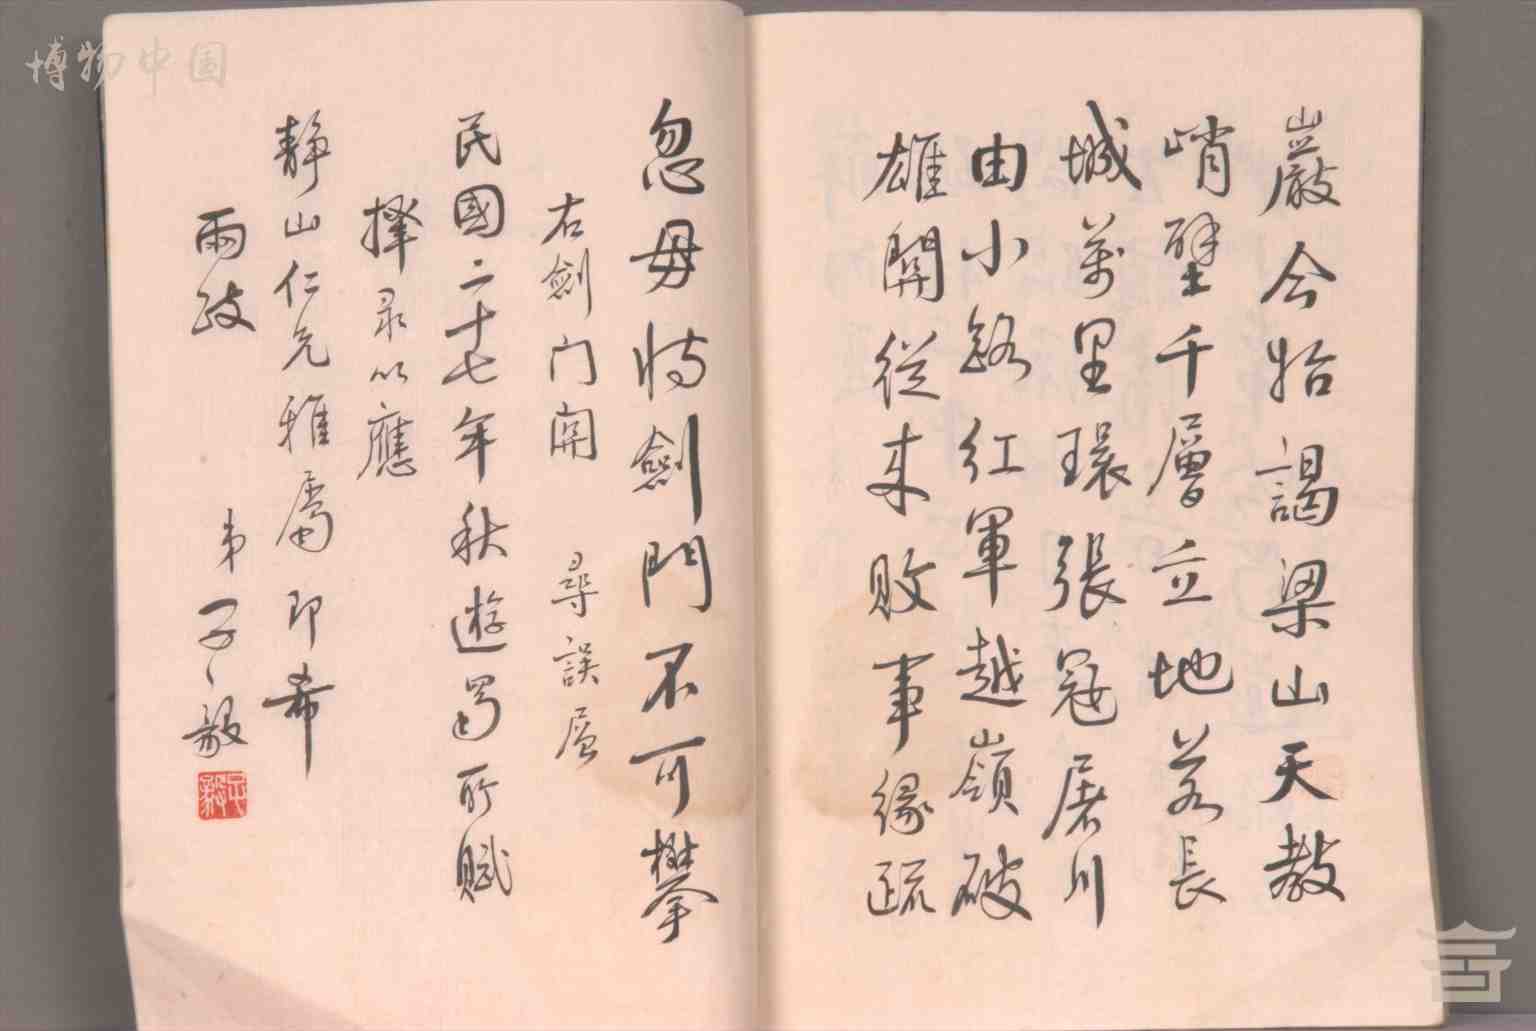 巖今始謁梁山天教
峭壁千層立地若長
城萬里環張寇屠川
由小路紅軍越嶺破
雄關從来敗事緣疏
忽毋恃劍門不可攀
右劍门關　尋誤層
民國二十七年秋遊蜀所賦
擇录以應
静山仁兄雅屬即希
兩政　弟子毅
博物中国